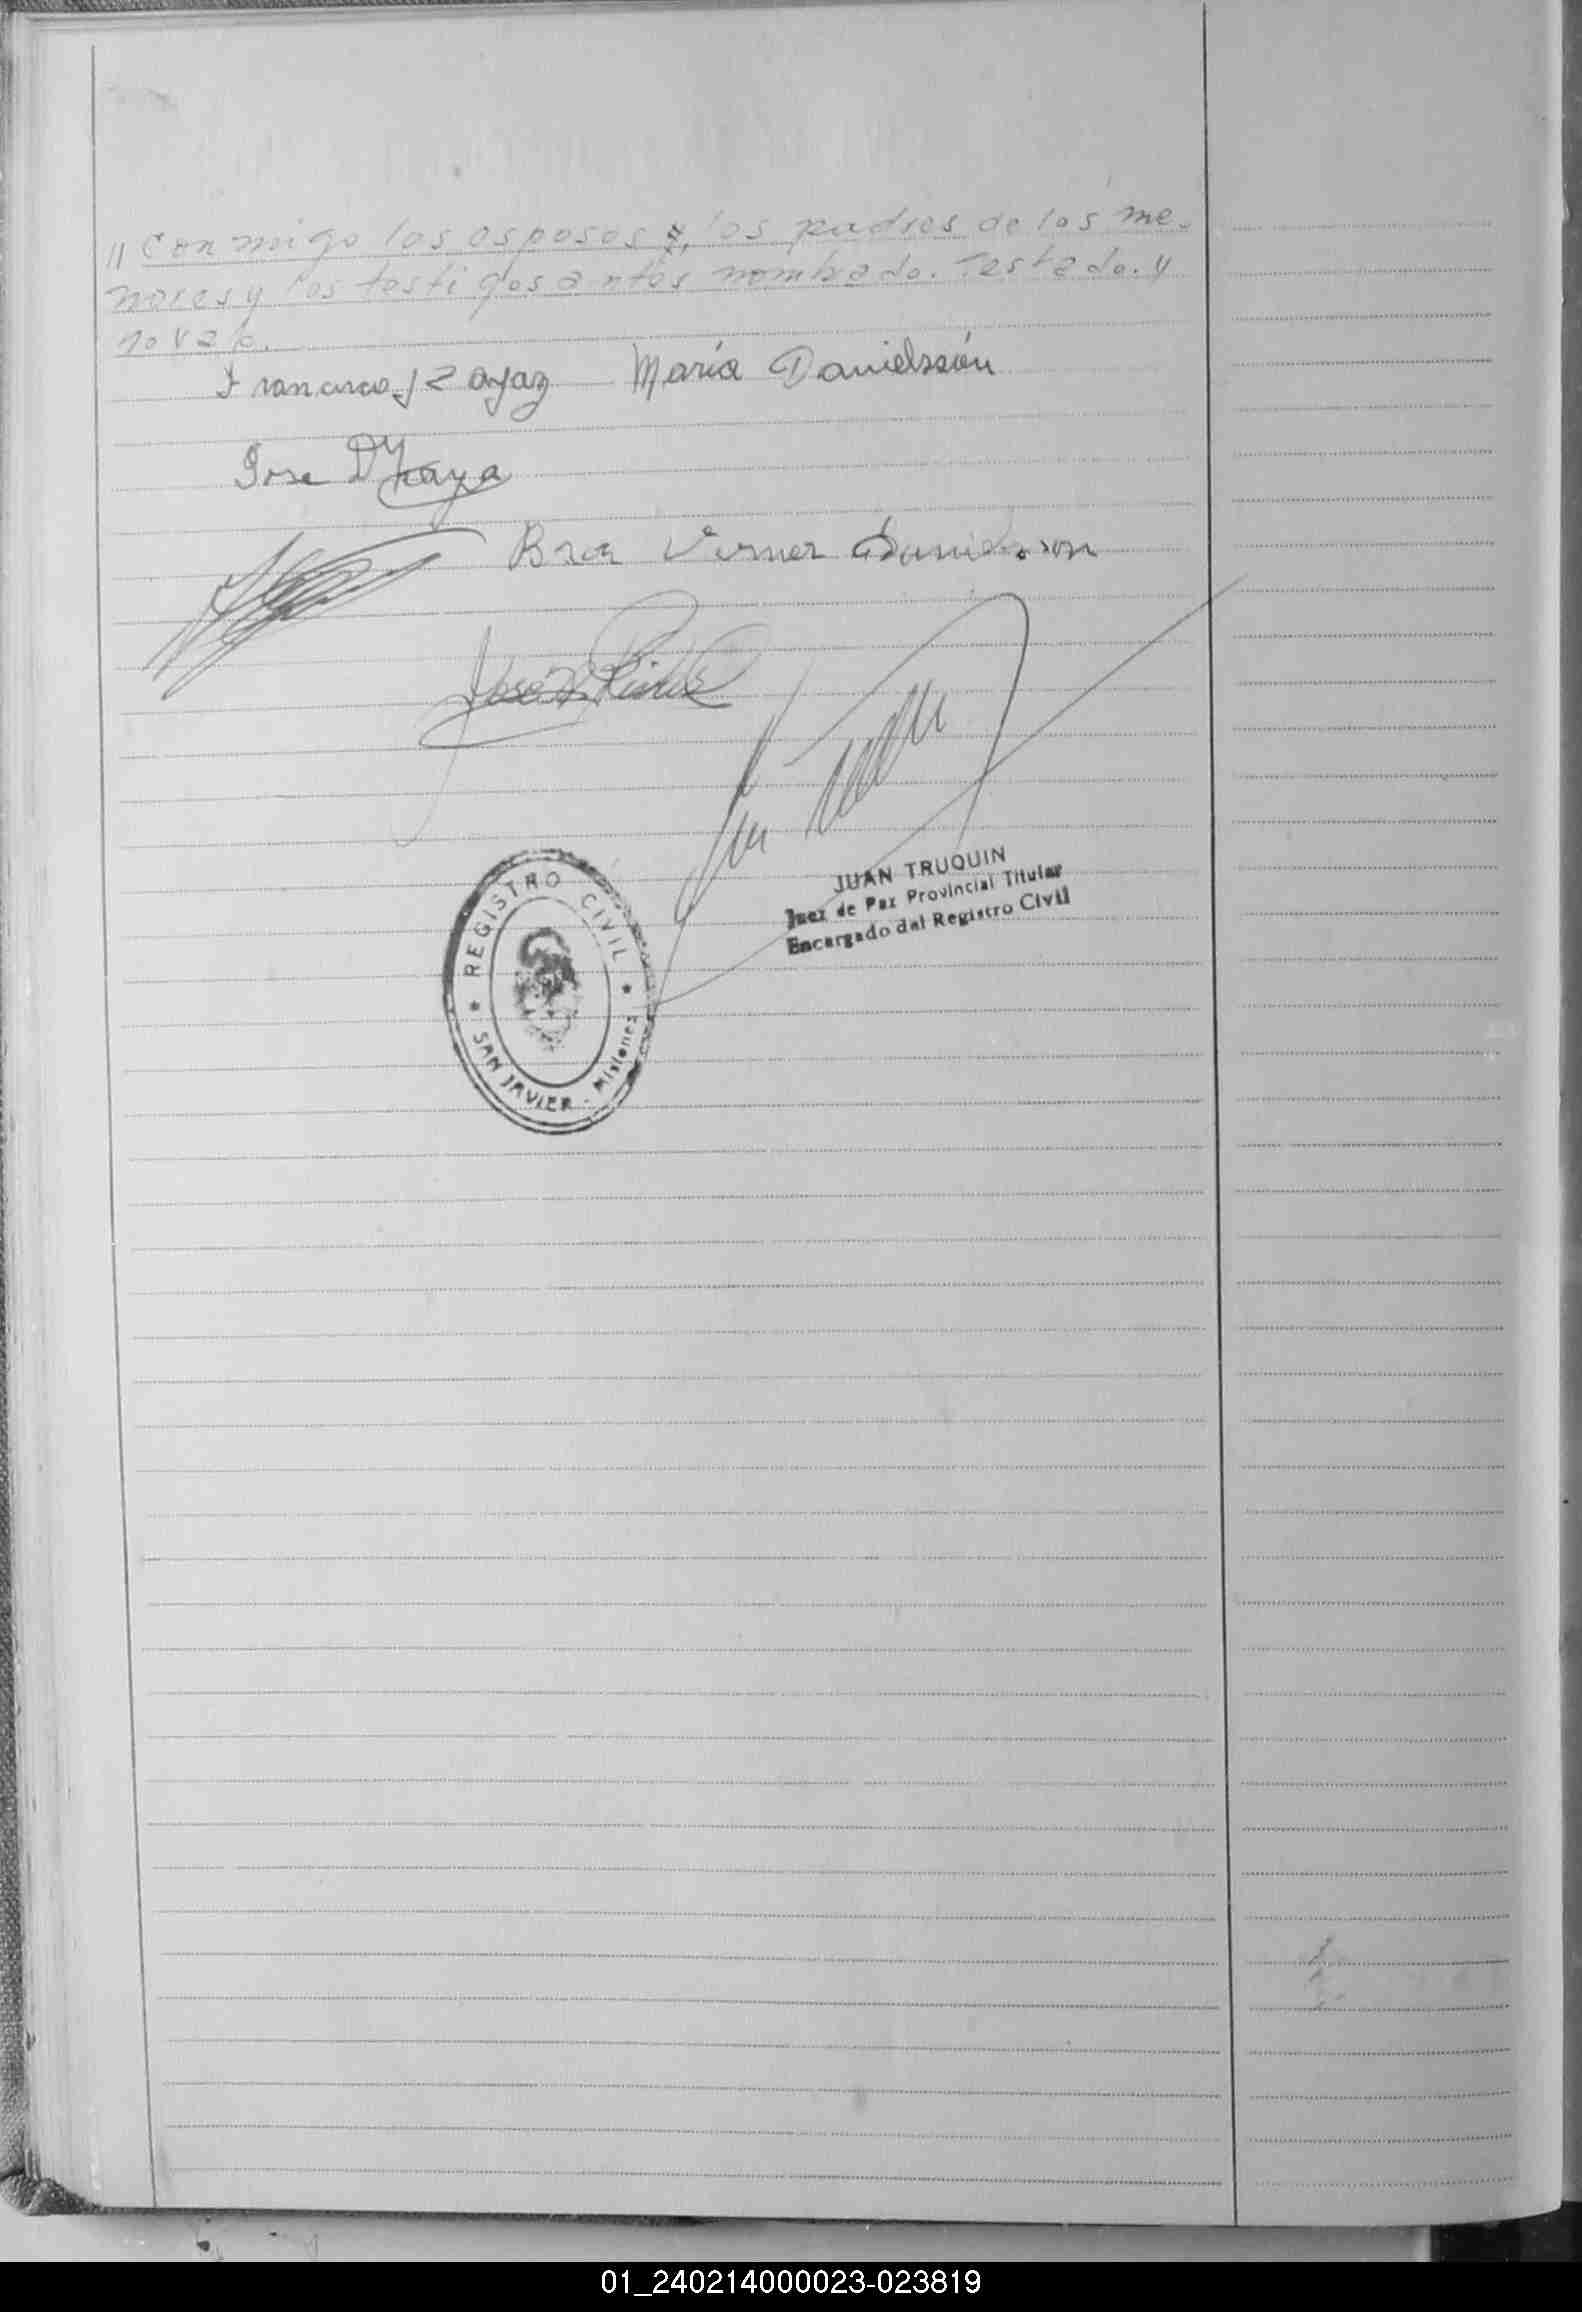 // Conmigo los esposos y, los padres de los me-
nores y los testigos antes nombrado. Testado. y
no vale.
María Danielssón
Jose
Verner Danielsson
JUAN TRUQUIN
Juez de Paz Provincial Titular
Encargado del Registro Civil
REGISTRO CIVIL
SAN JAVIER - Misiones
01_240214000023-023819